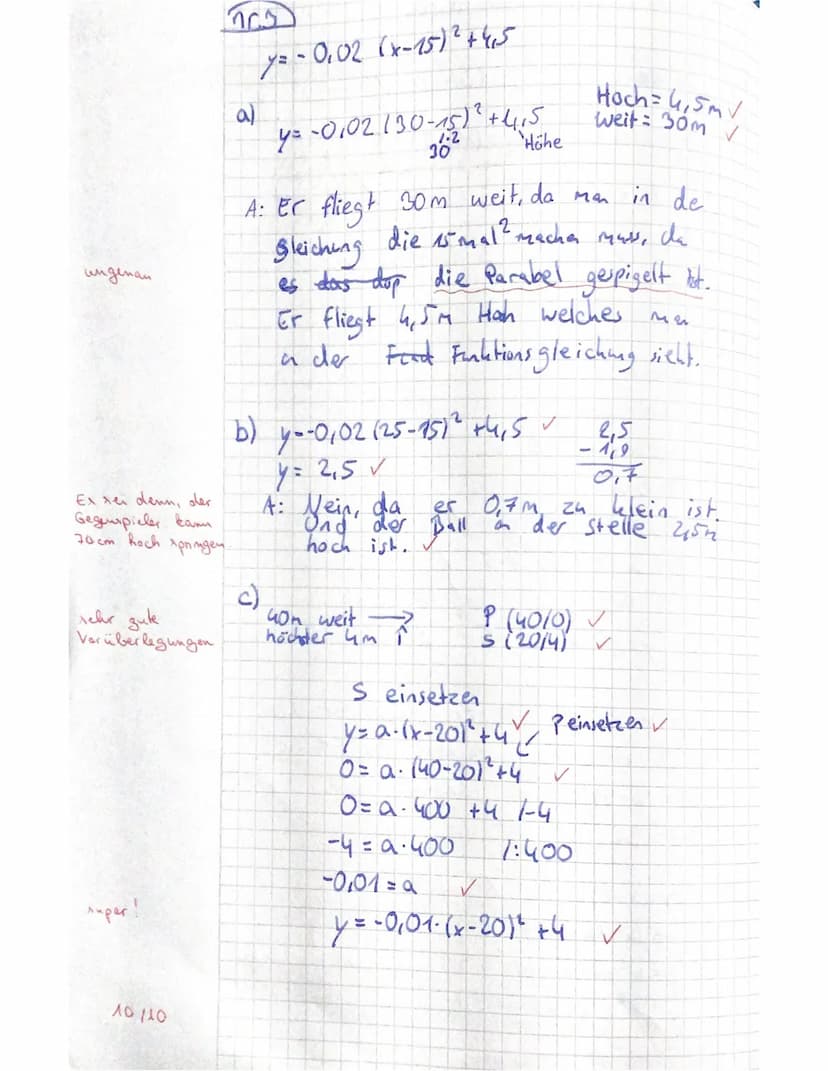 Nr. 5
y = - 0,02 (x-15)² + 4,5
a)
y = -0,02 (30-15)² + 4,5
Hoch = 4,5m ✓
Weit = 30m ✓
1·2
30
Höhe
A: Er fliegt 30m weit, da man in de
gleichung die 15 mal² machen muss, da
ungenau
es das dop die Parabel gespigelt ist.
Er fliegt 4,5m Hoh welches man
a der Funktionsgleichung sieht.
b) y=-0,02 (25-15)² +4,5 ✓
y = 2,5 ✓
2,5
- 1,8
0,7
Es sei denn, der
Gegenspieler kann
70cm hoch springen
A: Nein, da er 0,7m zu klein ist.
Und der Ball a der stelle 2,5m
hoch ist. ✓
c)
40m weit →
höchster 4m ↑
P (40/0) ✓
S (20/4) ✓
sehr gute
Vorüberlegungen
S einsetzen
y = a·(x-20)² + 4 ✓ P einsetzen ✓
0 = a · (40-20)² + 4 ✓
0 = a · 400 + 4 /-4
-4 = a·400 /:400
-0,01 = a ✓
super!
y = -0,01·(x-20)² + 4 ✓
10/10